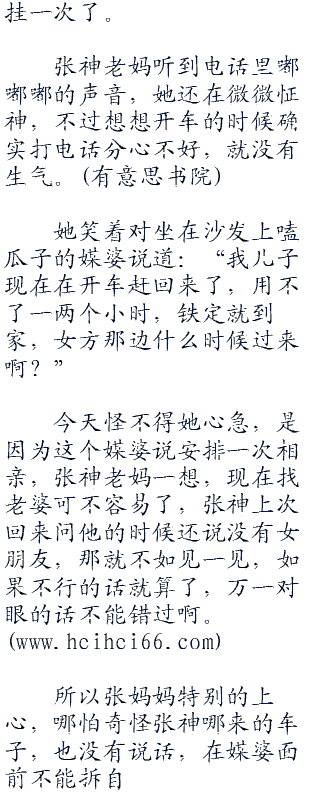 挂一次了。
张神老妈听到电话里嘟
嘟嘟的声音，她还在微微怔
神，不过想想开车的时候确
实打电话分心不好，就没有
生气。(有意思书院)
她笑着对坐在沙发上嗑
瓜子的媒婆说道：“我儿子
现在在开车赶回来了，用不
了一两个小时，铁定就到
家，女方那边什么时候过来
啊？”
今天怪不得她心急，是
因为这个媒婆说安排一次相
亲，张神老妈一想，现在找
老婆可不容易了，张神上次
回来问他的时候还说没有女
朋友，那就不如见一见，如
果不行的话就算了，万一对
眼的话不能错过啊。
(www.hcihci66.com)
所以张妈妈特别的上
心，哪怕奇怪张神哪来的车
子，也没有说话，在媒婆面
前不能拆自